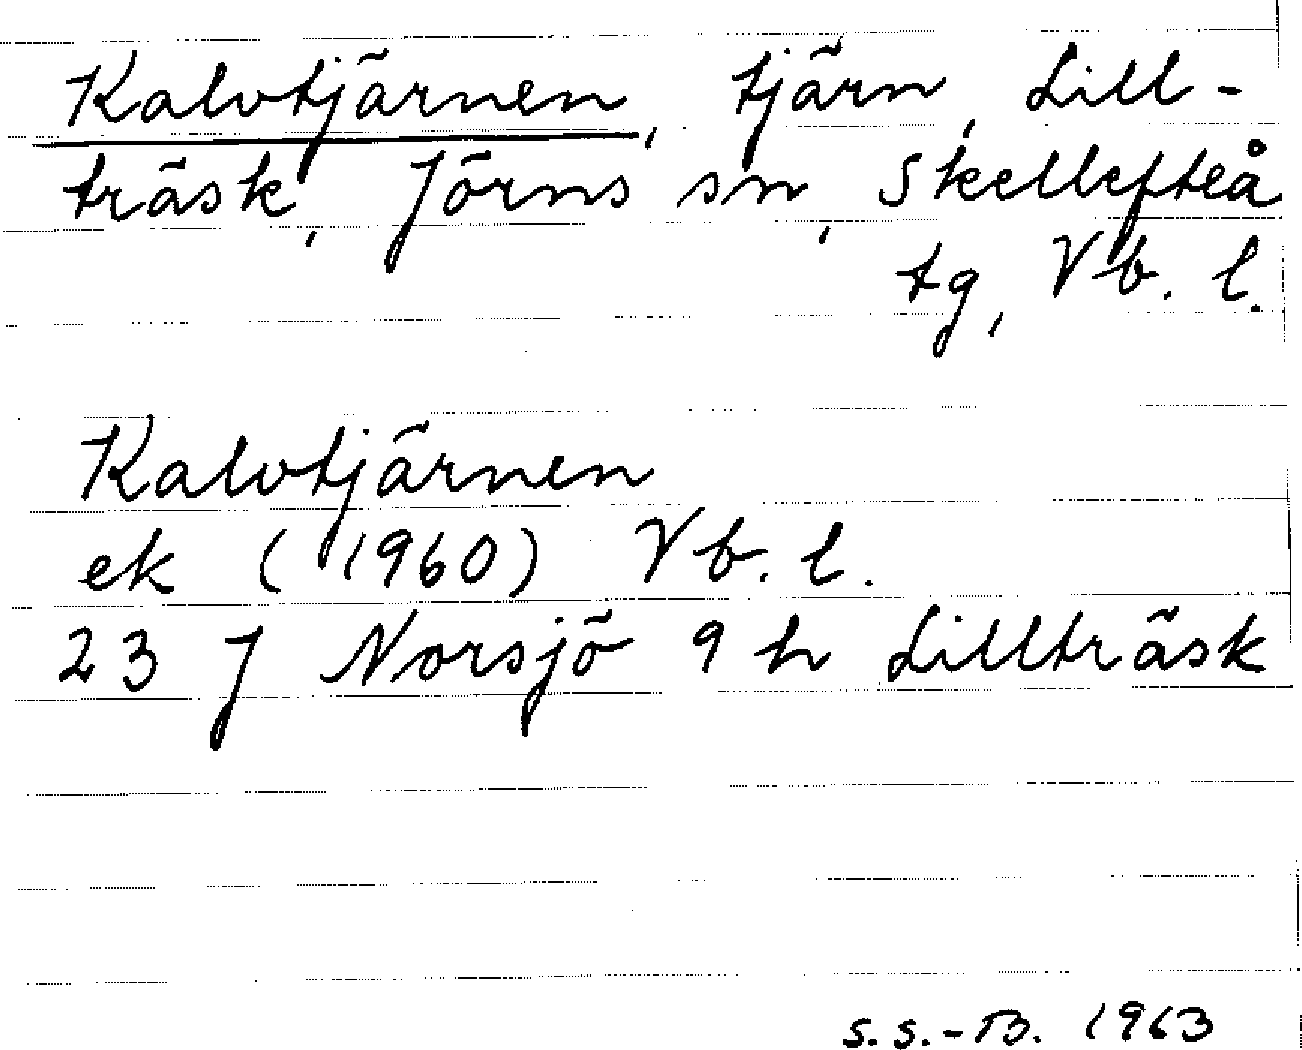 Kalvtjärnen, tjärn, Lill-
träsk, Jörns sn, Skellefteå
tg, Vb. l.
Kalvtjärnen
ek (1960) Vb. l.
23 J Norsjö 9 h Lillträsk
S.S.-B. 1963